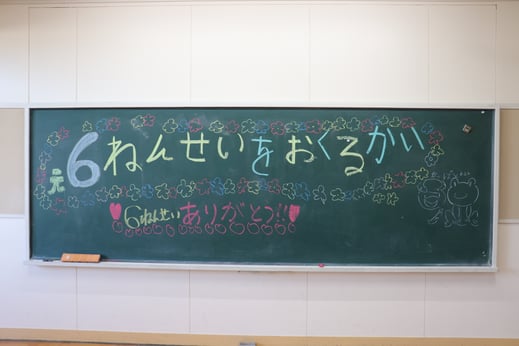 元6ねんせいをおくるかい
6ねんせいありがとう!!